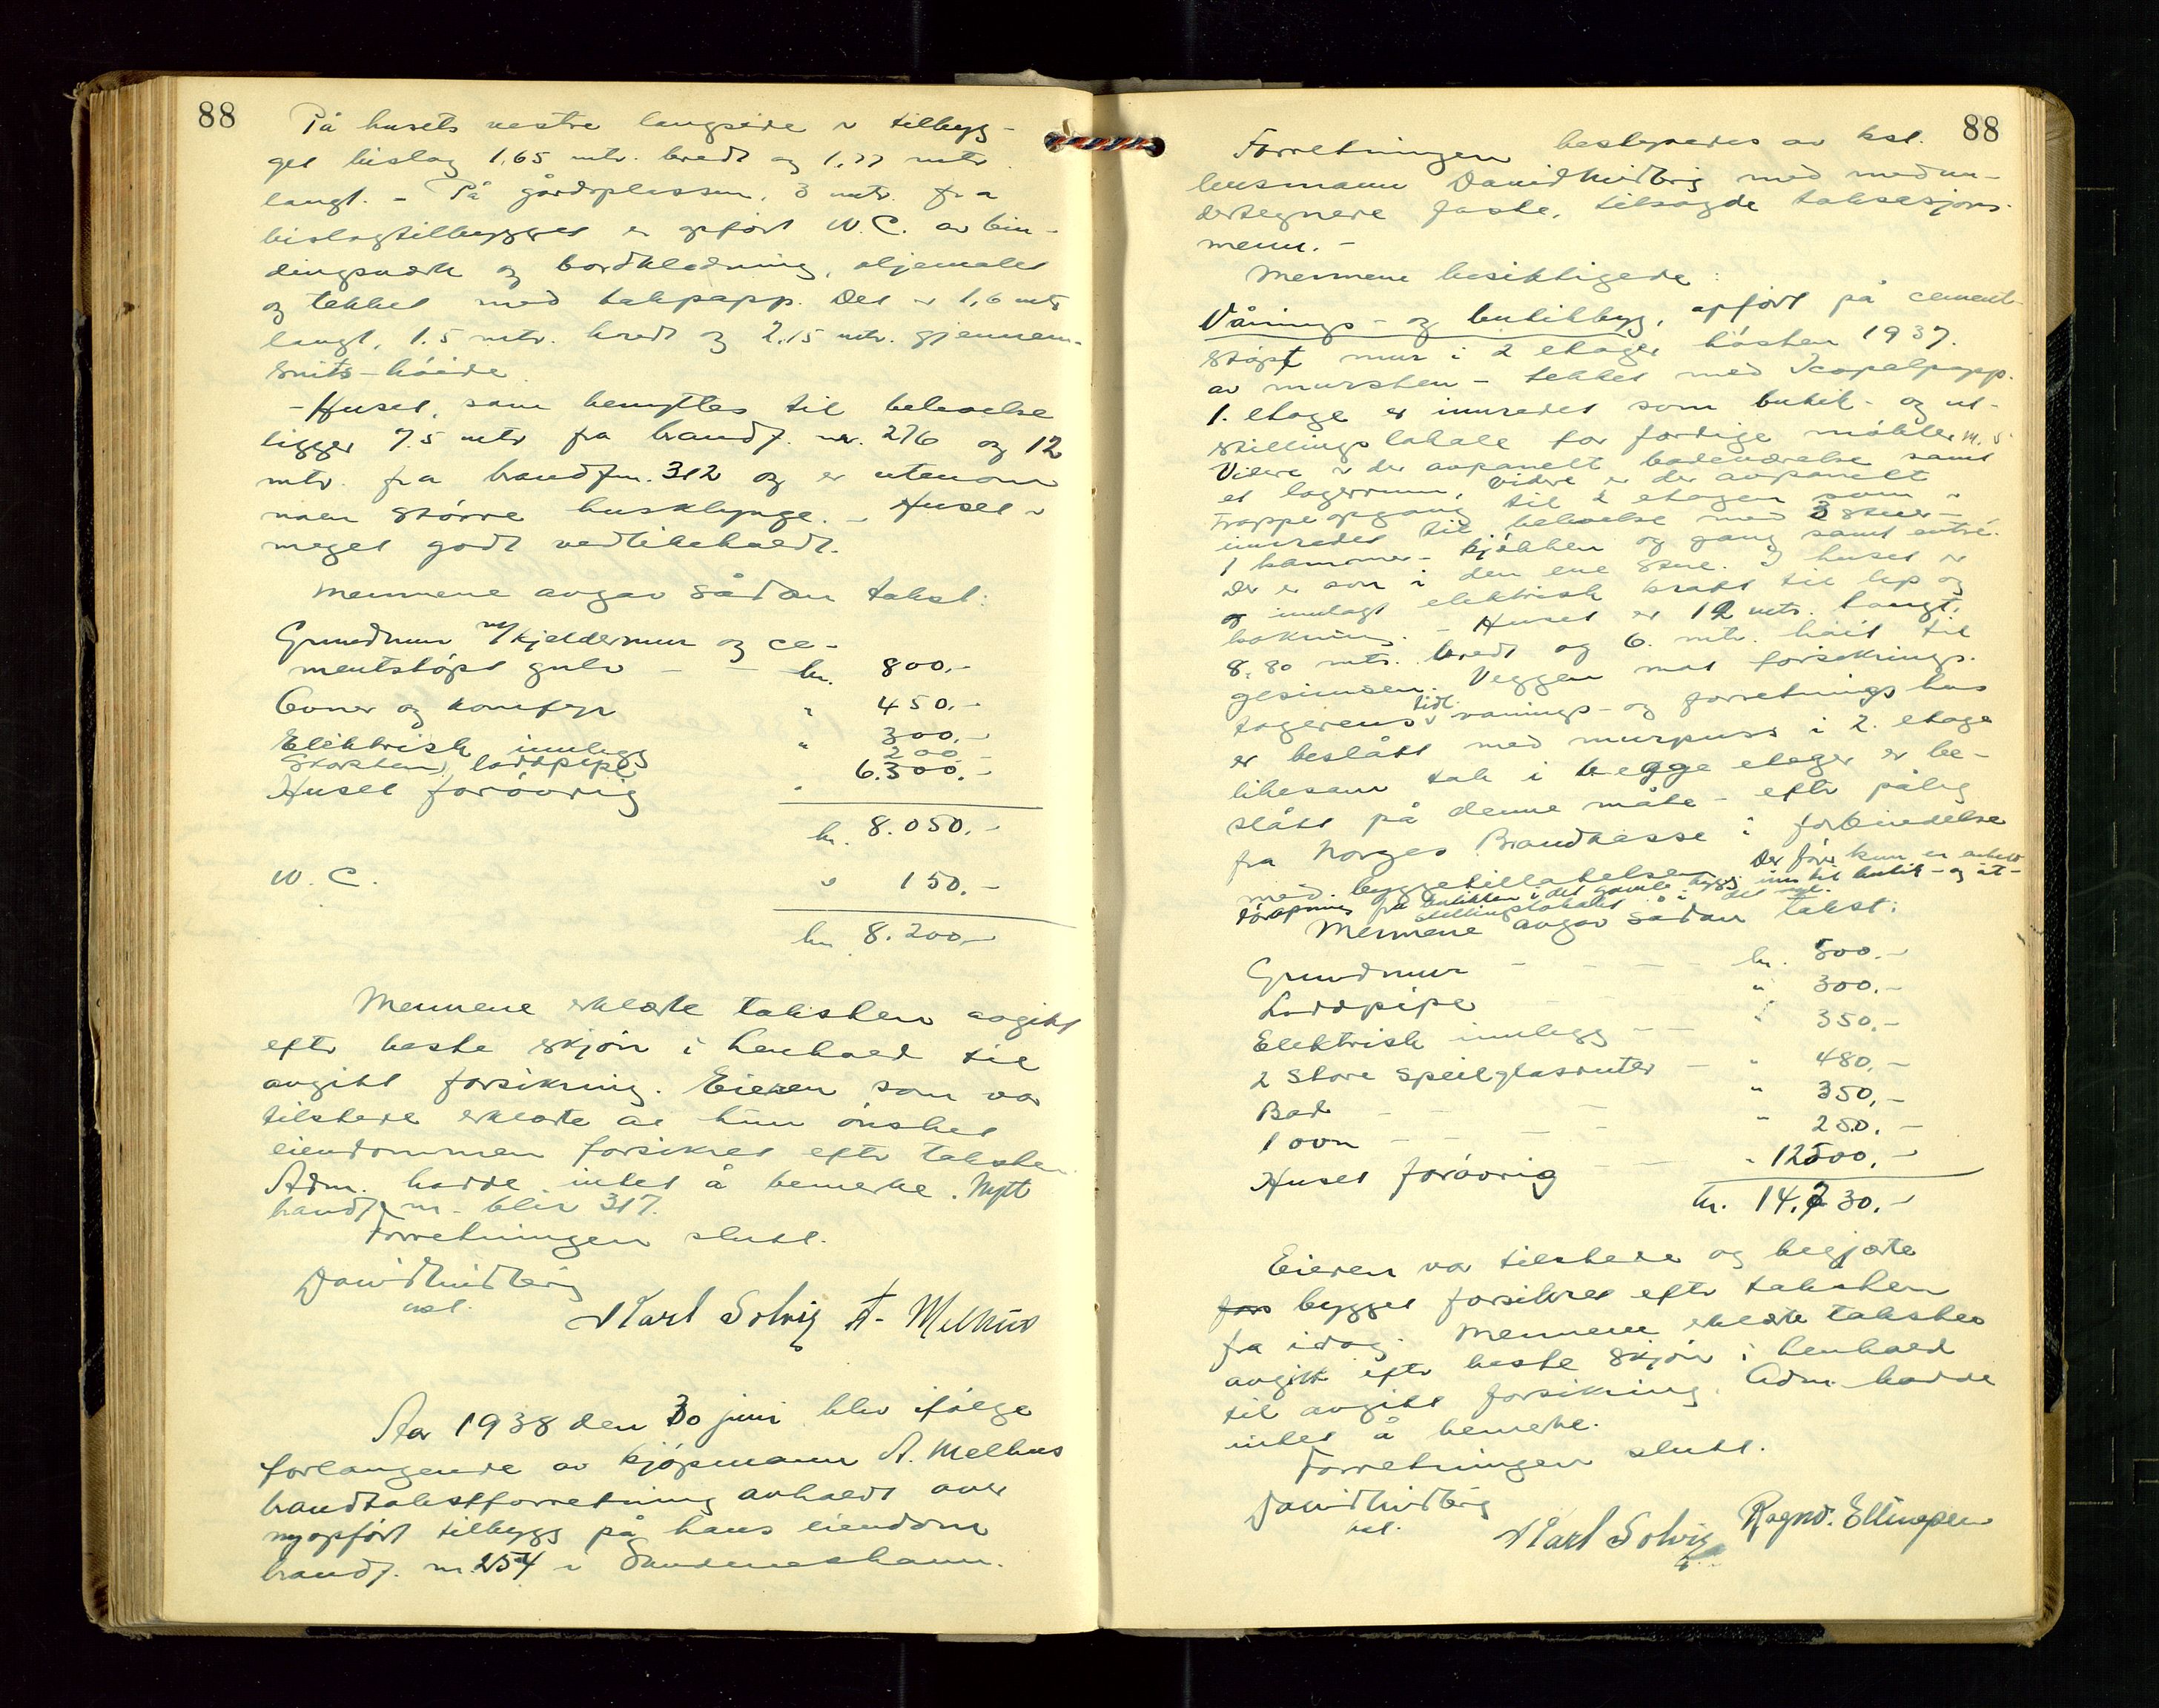 88
På husets vestre langside er tilbyg-
get bislag 1,65 mtr. bredt og 1,77 mtr.
langt. - På gårdsplassen, 3 mtr. fra
bislagtilbygget er opført W.C. av bin-
dingsverk og bordkledning, oljemalet
og tekket med takpapp. Det er 1,6 mtr
langt, 1.5 mtr. bredt og 2,15 mtr. gjennem-
snits-høide.
- Huset, som benyttes til beboelse
ligger 7.5 mtr fra brandf. nr. 276 og 12
mtr. fra brandf nr. 312 og er utenom
noen større husklynge. - Huset er
meget godt vedlikeholdt.
Mennene avgav sådan takst:
Grundmur m/kjeldermur og ce-
mentstøpt gulv - - kr. 800.-
Ovner og komfyr " 450.-
Elektrisk innlegg " 300.-
Skorsten, loddpipe 200.-
Huset forøvrig " 6.300.-
kr. 8.050.-
W. C. " 150.-
kr. 8.200.-
Mennene erklærte taksten avgitt
efter beste skjøn i henhold til
avgitt forsikring. Eieren som var
tilstede erklærte at hun ønsket
eiendommen forsikret efter taksten.
Adm. hadde intet å bemerke. Nytt
brandf. nr. blir 317.
Forretningen slutt.
David Hvidberg
kst.
Karl Solvig A. Melhus
Aar 1938 den 30 juni blev ifølge
forlangende av kjøpmann A. Melhus
brandtakstforretning avholdt over
nyopført tilbygg på hans eiendom
brandf. nr. 254 i Sandneshavn.
88
Forretningen bestyredes av kst.
lensmann David Hvidberg med medun-
dertegnere faste, tilsagde taksasjons-
menn. -
Mennene besiktigede:
Vånings- og butikbyg, opført på cement-
støpt mur i 2 etager høsten 1937.
av mursten - tekket med Icopalpapp.
1. etage er innredet som butik- og ut-
stillingslokale for færdige møbler m. v.
Videre er der avpanelt badeværelse samt
et lagerrum, videre er der avpanelt
trappeopgang til 2 etagen som er
innredet til beboelse med 3 stuer -
1 kammer - kjøkken og gang samt entré.
Der er ovn i den ene stue. I huset er
og innlagt elektrisk kraft til lys og
kokning. - Huset er 12 mtr. langt,
8,80 mtr. bredt og 6. mtr. høit til
gesimsen. Veggen mot forsikrings-
tagerens tidl. vånings- og forretningshus
er beslått med murpuss i 2. etage
likesom tak i begge etager er be-
slått på denne måte - efter pålegg
fra Norges Brandkasse i forbindelse
med byggetillatelsen. Der fører kun en enkelt
døråpning fra butikken i det gamle bygg inn til butik- og ut-
stillingslokalet i det nye.
Mennene avgav sådan takst:
Grundmur - - - - kr. 500.-
Loddpipe - - " 300.-
Elektrisk innlegg - - " 350.-
2 store speilglasruter - " 480.-
Bad - - - - " 350.-
1 ovn - - - - " 250.-
Huset forøvrig - - " 12500.-
kr. 14.730.-
Eieren var tilstede og begjærte
bygget forsikret efter taksten
fra idag. Mennene erklærte taksten
avgitt efter beste skjøn i henhold
til avgitt forsikring. Adm. hadde
intet å bemerke.
Forretningen slutt.
David Hvidberg
kst.
Karl Solvig Ragnv. Ellingsen